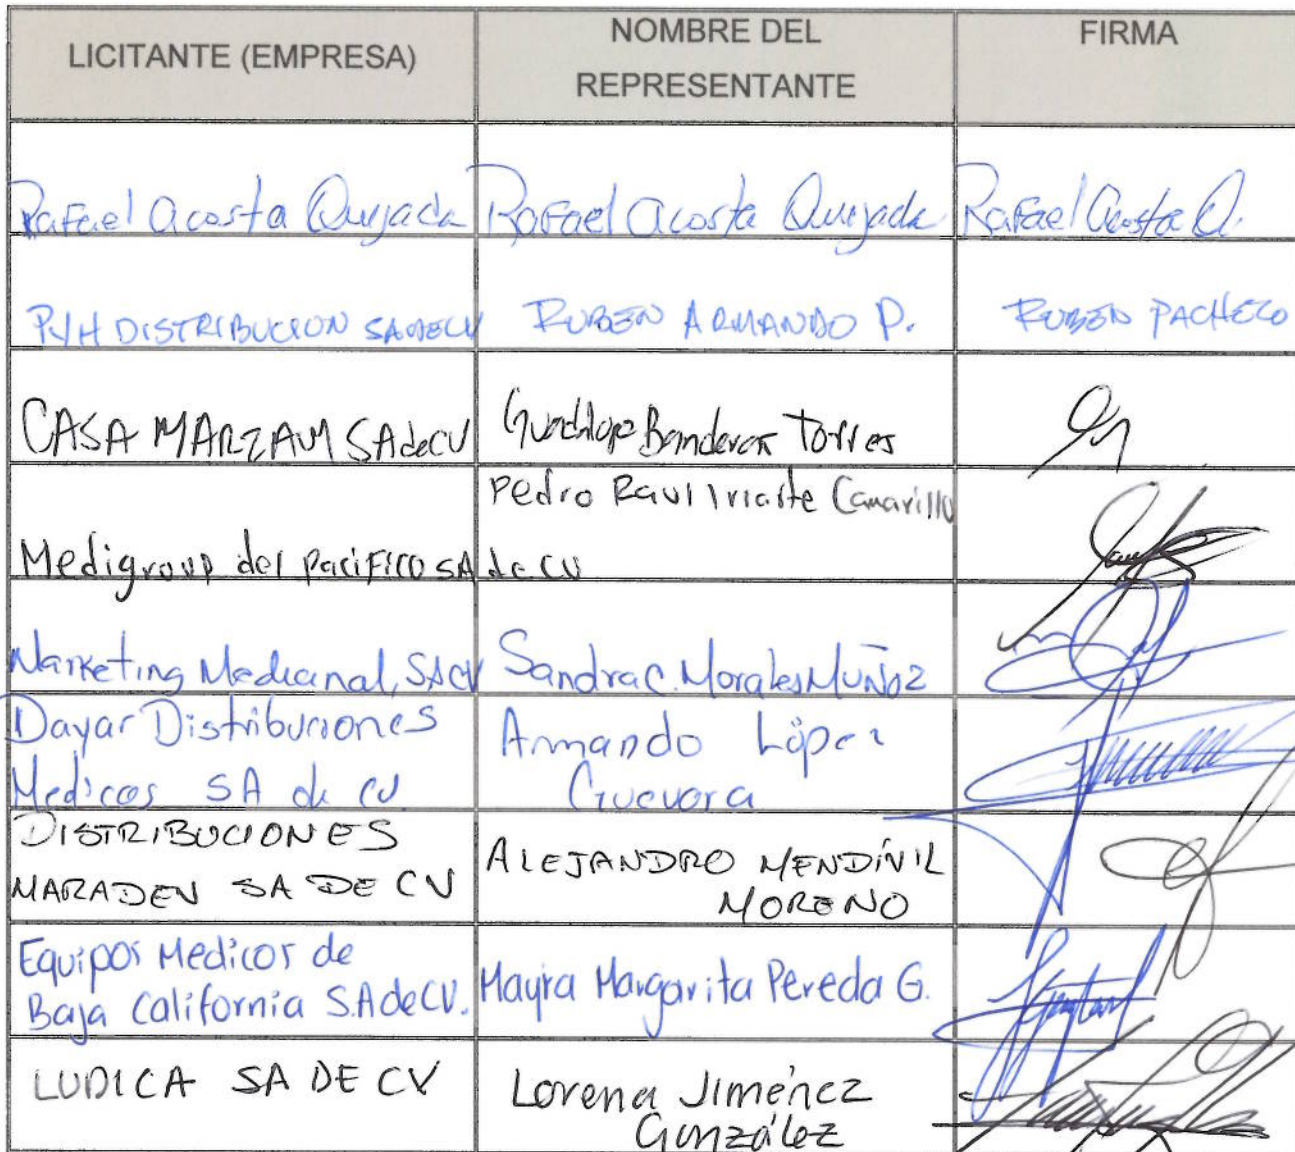 LICITANTE (EMPRESA) NOMBRE DEL REPRESENTANTE FIRMA
Rafael Acosta Quijada Rafael Acosta Quijada Rafael Acosta Q.
PYH DISTRIBUCION SA DE CV RUBEN ARMANDO P. RUBEN PACHECO
CASA MARZAM SA de CV Guadalupe Banderas Torres
Pedro Raul Iriarte Camarillo
Medigroup del Pacifico SA de CV
Marketing Medicinal, SACV Sandra C. Morales Muñoz
Dayar Distribuciones Armando López
Medicas SA de CV Guevara
DISTRIBUCIONES ALEJANDRO MENDÍVIL
MARADEN SA DE CV MORENO
Equipos Medicos de
Baja California S.A de CV. Mayra Margarita Pereda G.
LUDICA SA DE CV Lorena Jiménez
González